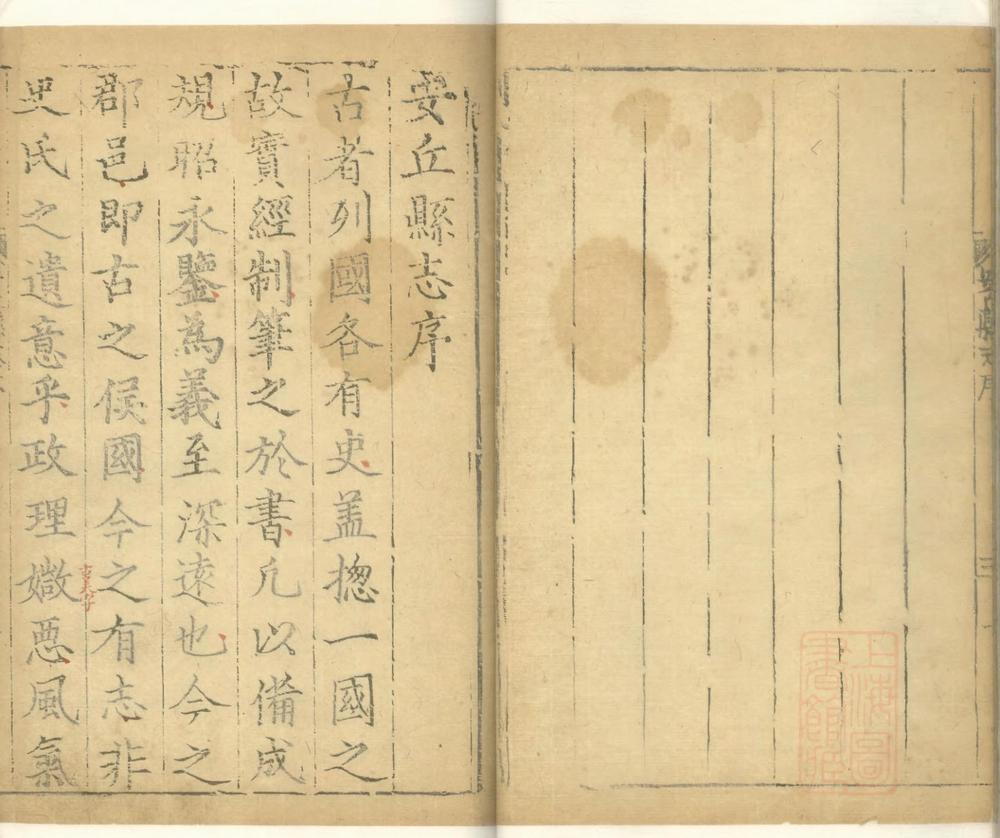 安丘縣志序
三
上海圖書館藏
安丘縣志序
古者列國各有史盖揔一國之
故實經制筆之於書凡以備成
規昭永鑒為義至深遠也今之
郡邑即古之侯國今之有志非
古美字
史氏之遺意乎政理媺惡風氣